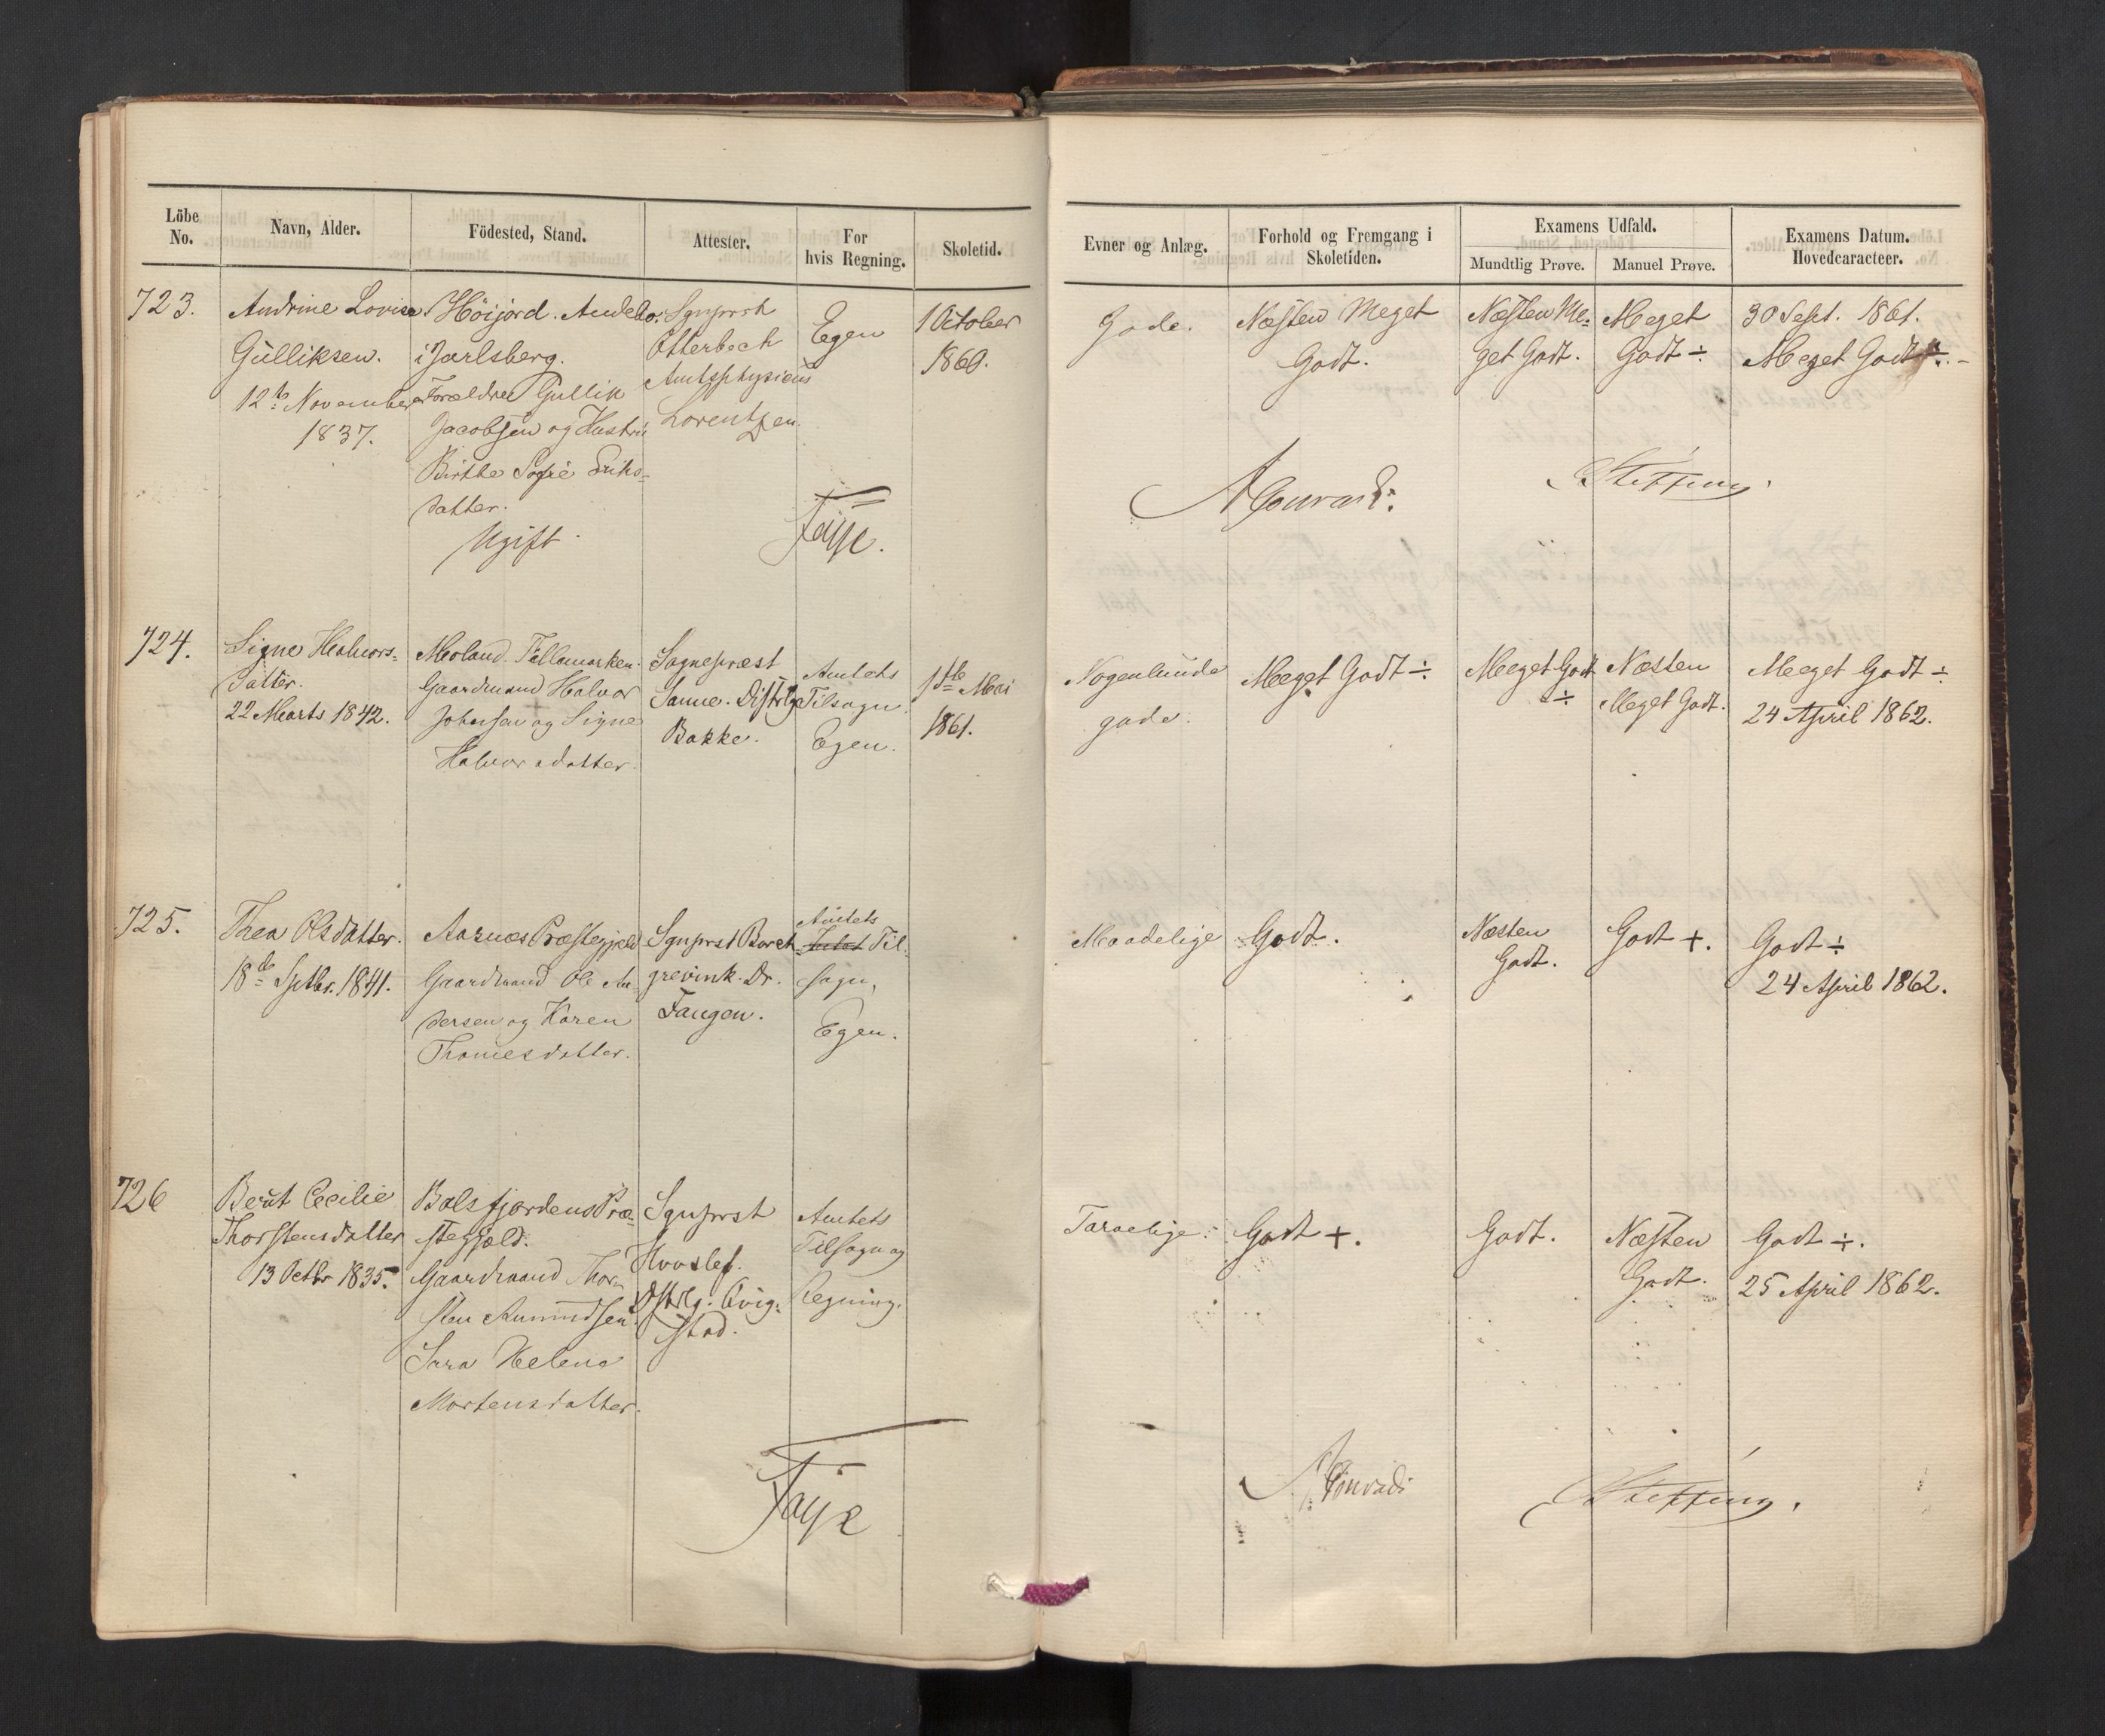 Löbe No.
Navn, Alder.
Födested, Stand.
Attester.
For hvis Regning.
Skoletid.
Evner og Anlæg.
Forhold og Fremgang i Skoletiden.
Examens Udfald.
Mundtlig Prøve.
Manuel Prøve.
Examens Datum. Hovedcaracteer.
723.
Andrine Lovise
Gulliksen.
12te November
1837.
Höijord. Andebo.
i Jarlsberg.
Forældre Gullik
Jacobsen og Hustru
Birthe Sofie Eriks-
datter.
Ugift.
Sgnprst
Otterbech
Amtsphysicus
Lorentzen.
Egen
1 October
1860.
Gode.
Næsten Meget
Godt.
Næsten Me-
get Godt.
Meget
Godt ÷
30 Sept. 1861.
Meget Godt ÷.
Faye.
Conradi.
Steffens.
724.
Signe Halvors-
datter.
22 Marts 1842.
Moland. Tellemarken.
Gaardmand Halvor
Johnsen og Signe
Halvorsdatter.
Sognepræst
Sanne. Distrlg
Bakke.
Amtets
Tilsagn
Egen.
1ste Mai
1861.
Nogenlunde
gode.
Meget Godt ÷
Meget Godt
÷
Næsten
Meget Godt.
Meget Godt ÷
24 April 1862.
725.
Thea Olsdatter.
18de Sptbr. 1841.
Aasnæs Præstegjæld
Gaardmand Ole An-
dersen og Karen
Thomesdatter.
Sgnprst Borch
grevink. Dr.
Fangen.
Amtets
Til-
sagn,
Egen.
Maadelige
Godt.
Næsten
Godt.
Godt +.
Godt ÷
24 April 1862.
726
Berit Cecilie
Thorstensdatter
13 Octbr 1835.
Balsfjordens Præ-
stegjæld.
Gaardmand Thor-
sten Amundsen
Sara Helena
Mortensdatter.
Sgnprst
Hvoslef.
Dstrlg. Qvig-
stad.
Amtets
Tilsagn og
Regning.
Taaelige.
Godt +.
Godt.
Næsten
Godt.
Godt ÷.
25 April 1862.
Faye
Conradi
Steffens.